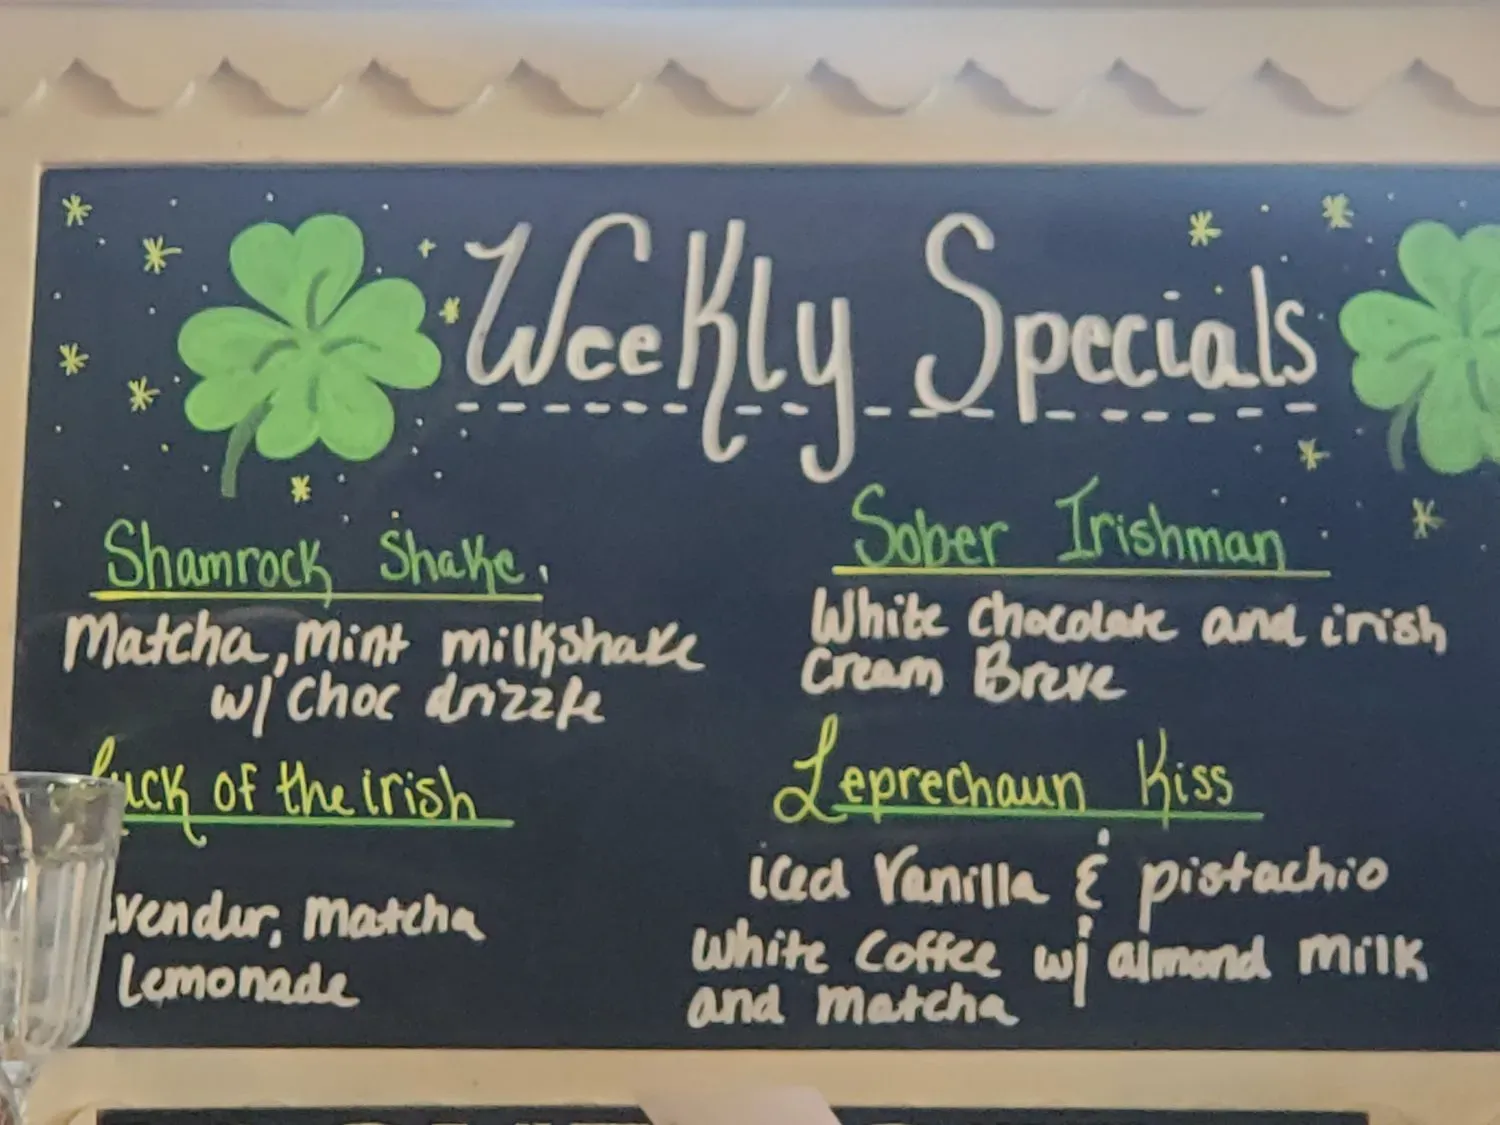 Weekly Specials
Shamrock Shake.
Matcha, mint milkshake
w/ choc drizzle
Luck of the irish
vender, matcha
Lemonade
Sober Irishman
White chocolate and irish
cream Breve
Leprechaun Kiss
iced vanilla & pistachio
white coffee w/ almond milk
and matcha